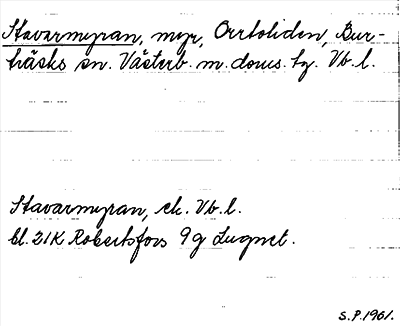 Stavarmyran, myr, Orrtoliden, Bur-
träsks sn. Västerb. m. doms. tg. Vb. l.
Stavarmyran, ek. Vb. l.
bl. 21K Robertsfors 9g Lugnet.
S.P. 1961.